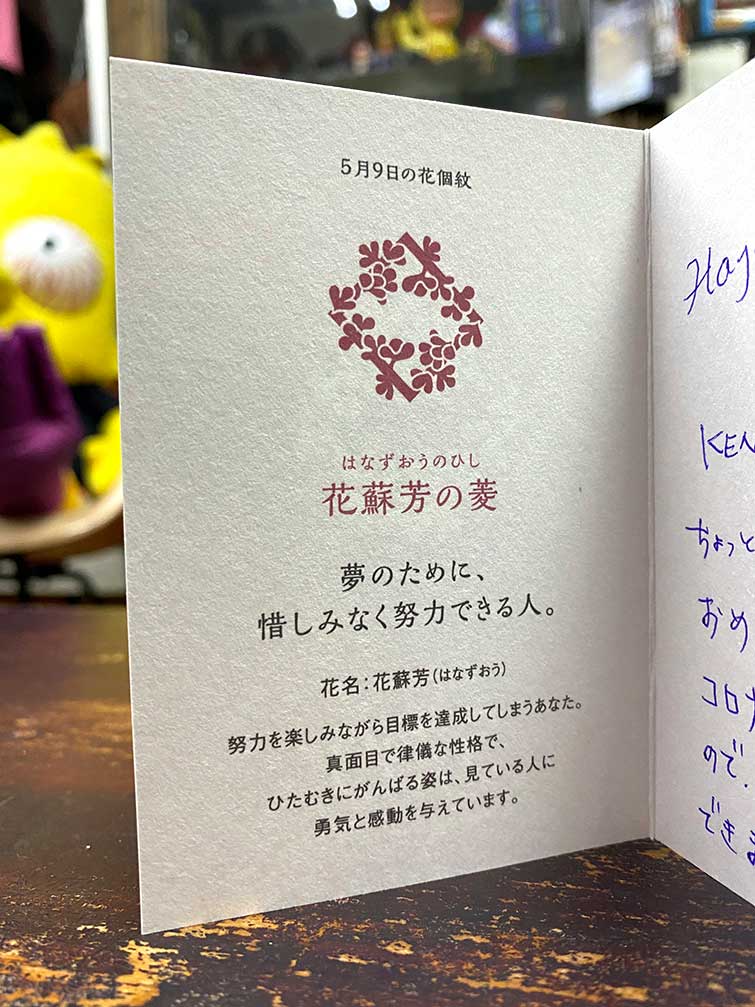 5月9日の花個紋
はなずおうのひし
花蘇芳の菱
夢のために、
惜しみなく努力できる人。
花名:花蘇芳(はなずおう)
努力を楽しみながら目標を達成してしまうあなた。
真面目で律儀な性格で、
ひたむきにがんばる姿は、見ている人に
勇気と感動を与えています。
KEN
ちょっと
おめ
コロナ
ので.
できま